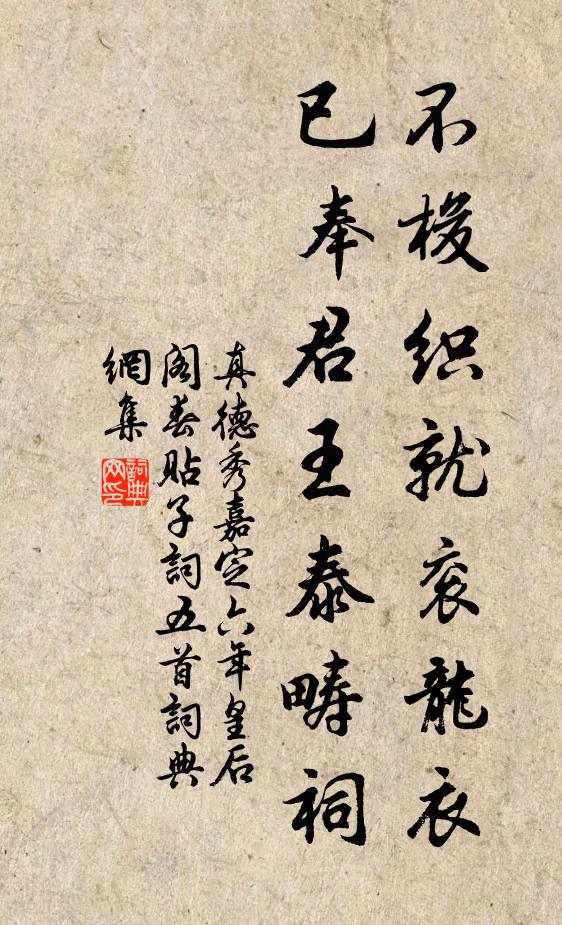 不梭织就衮龍衣
已奉君王泰畤祠
真德秀嘉定六年皇后
阁春貼子詞五首詞典
網集
詞典网印